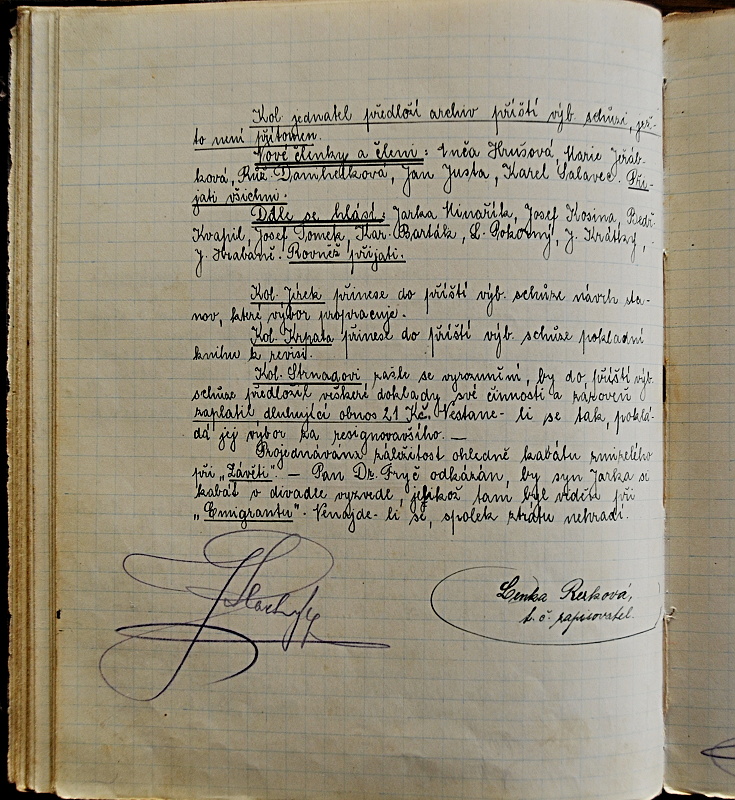 Kol. jednatel předloží archiv příští výb. schůzi, jež-
to není přítomen.
Nové členky a členi: Anča Hrušová, Marie Jeřáb-
ková, Růž. Jan Justa, Karel Salavec. Při-
jati všichni.
Dále se hlásí: Jarka Minařík, Josef Kosina, Bedř.
Kvapil, Josef Tomek, Kar. Barták, L. Pokorný, J. Krátký,
J. Hrabaně. Rovněž přijati.
Kol. Jírek přinese do příští výb. schůze návrh sta-
nov, které výbor propracuje.
Kol. Krpata přinese do příští výb. schůze pokladní
knihu k revisi.
Kol. Strnadovi zašle se vyrozumění, by do příští výb.
schůze předložil veškeré doklady své činnosti a zároveň
zaplatil dluhující obnos 21 Kč. Nestane-li se tak, poklá-
dá jej výbor za resignovavšího. —
Projednávána záležitost ohledně kabátu zmizelého
při „Závěti". — Pan Dr. Fryč odkázán, by syn Jarka si
kabát v divadle vyzvedl, jelikož tam byl viděn při
„Emigrantu". Nenajde-li se, spolek ztrátu nehradí.
Lenka Rerková,
t. č. zapisovatel.